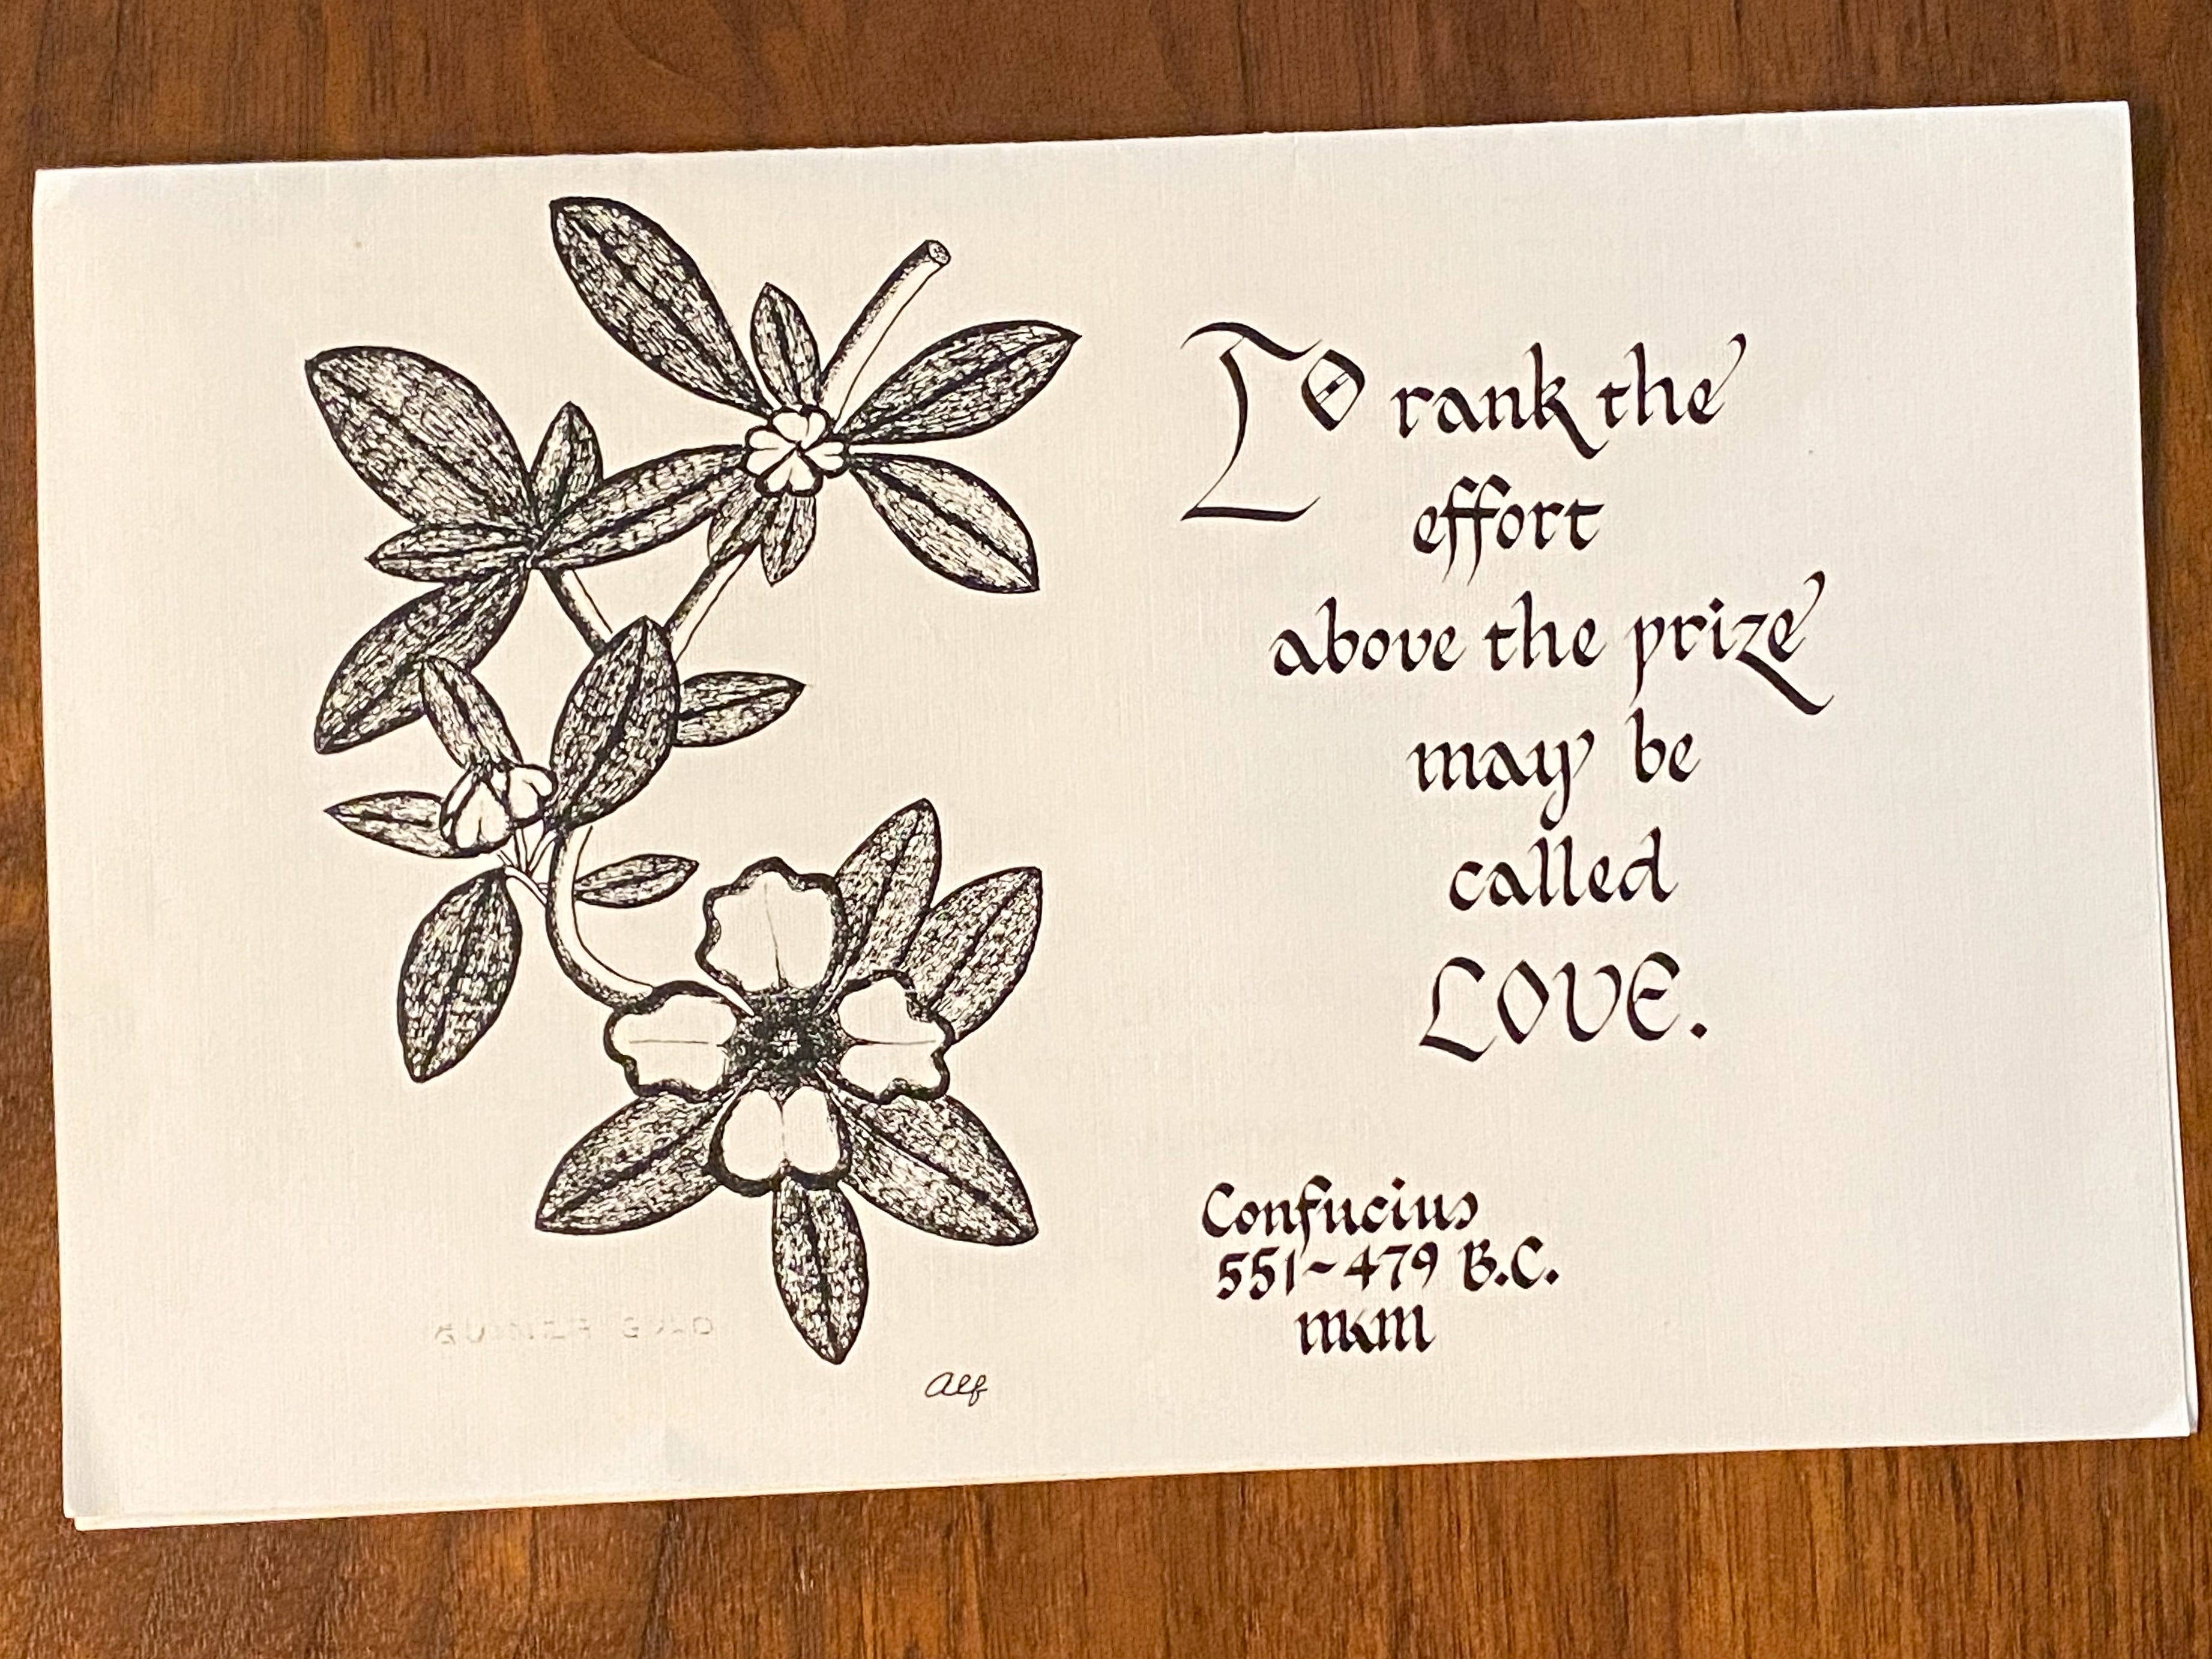 To rank the
effort
above the prize
may be
called
LOVE.
Confucius
551~479 B.C.
mkm
alf